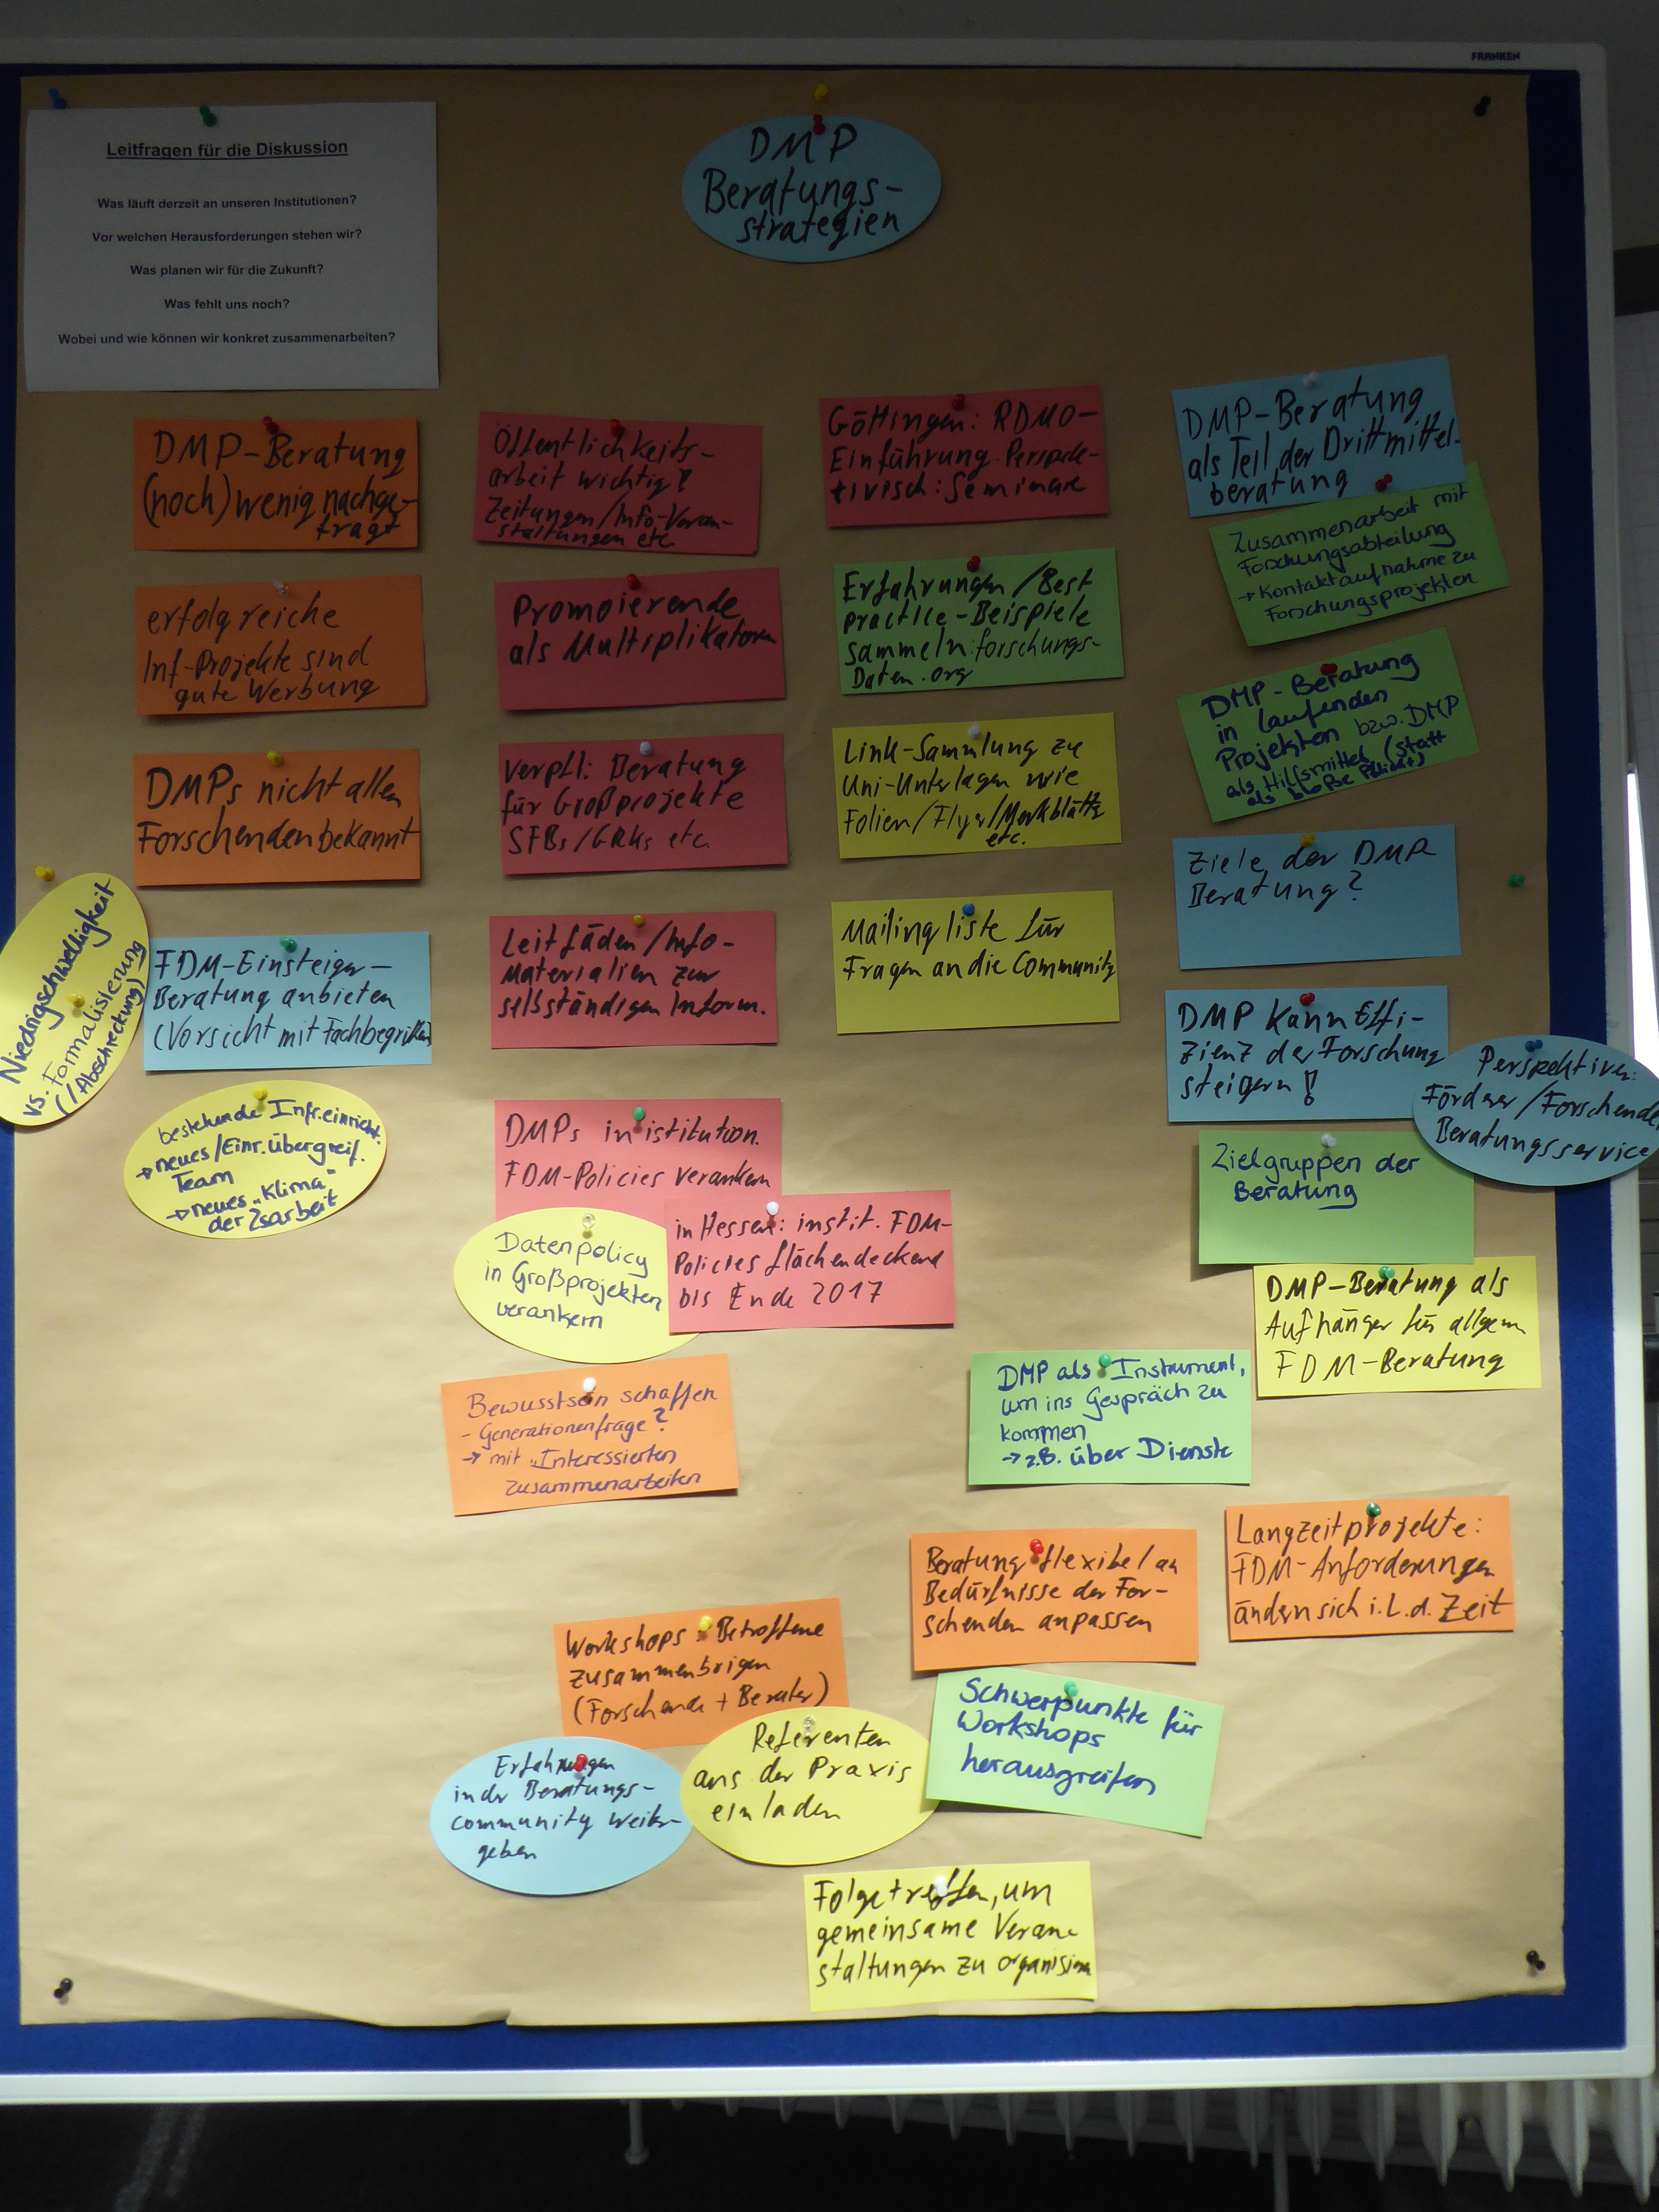 FRANKEN
Leitfragen für die Diskussion
Was läuft derzeit an unseren Institutionen?
Vor welchen Herausforderungen stehen wir?
Was planen wir für die Zukunft?
Was fehlt uns noch?
Wobei und wie können wir konkret zusammenarbeiten?
DMP
Beratungs-
strategien
DMP-Beratung
(noch) wenig nachge-
fragt
erfolgreiche
Inf-Projekte sind
gute Werbung
DMPs nicht allen
Forschenden bekannt
Niedrigschwelligkeit
vs. Formalisierung
(/Abschreckung)
FDM-Einsteiger-
Beratung anbieten
(Vorsicht mit Fachbegriffen)
bestehende Infr.einricht.
→ neues/Einr.übergreif.
Team
→ neues "Klima"
der Zsarbeit
Öffentlichkeits-
arbeit wichtig!
Zeitungen/Info-Veran-
staltungen etc
Promoierende
als Multiplikatoren
Verpfl: Beratung
für Großprojekte
SFBs/GRKs etc.
Leitfäden/Info-
Materialien zur
selbständigen Inform.
DMPs in istitution.
FDM-Policies verankern
Datenpolicy
in Großprojekten
verankern
in Hessen: instit. FDM-
Policies flächendeckend
bis Ende 2017
Bewusstsein schaffen
- Generationenfrage?
→ mit "Interessierten
zusammenarbeiten
Göttingen: RDMO-
Einführung. Perspek-
tivisch: Seminare
Erfahrungen/Best
practice-Beispiele
sammeln: forschungs-
Daten.org
Link-Sammlung zu
Uni-Unterlagen wie
Folien/Flyer/Merkblätter
etc.
Mailingliste für
Fragen an die Community
DMP-Beratung
als Teil der Drittmittel-
beratung
Zusammenarbeit mit
Forschungsabteilung
→ Kontaktaufnahme zu
Forschungsprojekten
DMP-Beratung
in laufenden
Projekten bzw. DMP
als Hilfsmittel (statt
als bloße Pflicht)
Ziele der DMP
Beratung?
DMP kann Effi-
zienz der Forschung
steigern!
Perspektiven:
Förderer/Forschende
Beratungsservice
Zielgruppen der
Beratung
DMP-Beratung als
Aufhänger für allgem
FDM-Beratung
DMP als Instrument,
um ins Gespräch zu
kommen
→ z.B. über Dienste
Beratung flexibel an
Bedürfnisse der For-
schenden anpassen
Langzeitprojekte:
FDM-Anforderungen
ändern sich i.L.d. Zeit
Workshops: Betroffene
zusammenbrigen
(Forschende + Berater)
Erfahrungen
in der Beratungs-
community weiter-
geben
Referenten
aus der Praxis
einladen
Schwerpunkte für
Workshops
herausgreifen
Folgetreffen, um
gemeinsame Veran-
staltungen zu organisieren